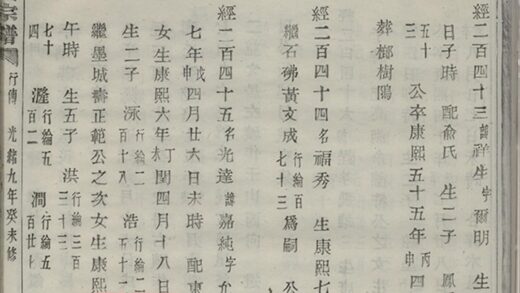 經二百四十三諱祥生字爾明　生
日子時　配俞氏　生二子　鳳
五十三　公卒康熙五十五年丙申四
葬榔樹隝
經二百四十四名福秀　生康熙七
繼石硪黃文成行綸百七十三爲嗣　公
經二百四十五名光達諱嘉純字允
七年戊申四月廿六日未時　配東
女生康熙六年丁閏四月十八日
生二子　泳行綸二百十八　浩行綸二百五十一
繼墨城壽正範公之次女生康熙
午時　生五子　洪行綸三百三十三
七十四　瀅行綸五百二　澗行綸五百廿七
宗譜　行傳　光緒九年癸未修